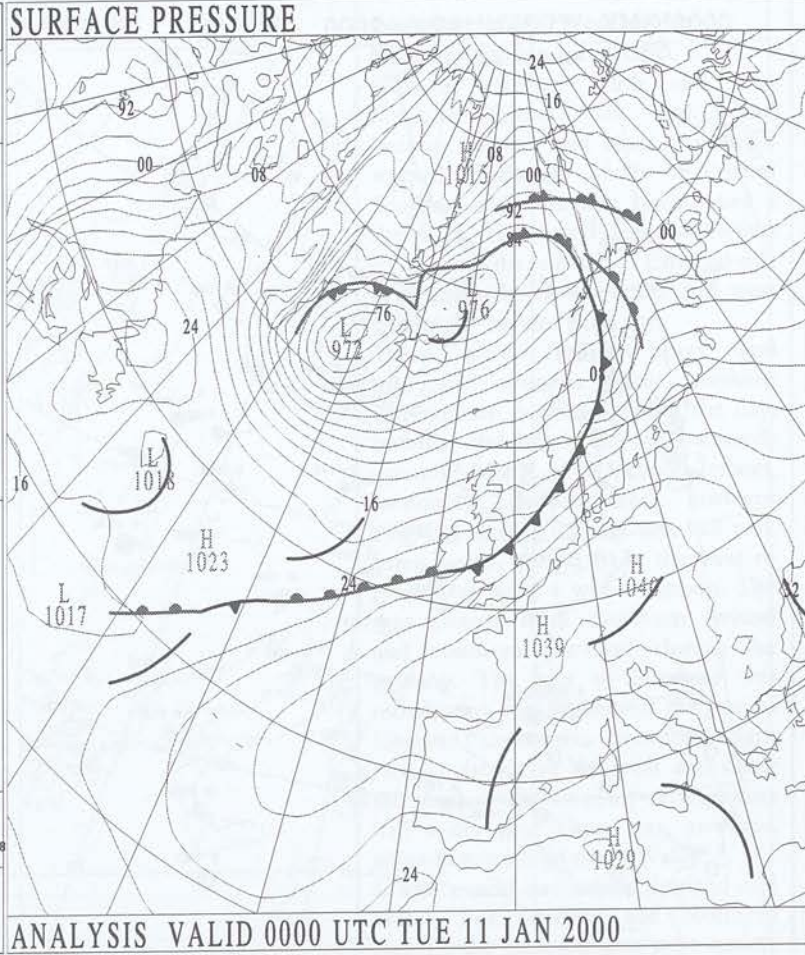 SURFACE PRESSURE
24
92
16
00
08
H
1015
08
00
92
84
00
L
976
76
L
972
24
08
L
1018
16
16
H
1023
24
L
1017
H
1040
32
H
1039
H
1029
24
8
ANALYSIS VALID 0000 UTC TUE 11 JAN 2000